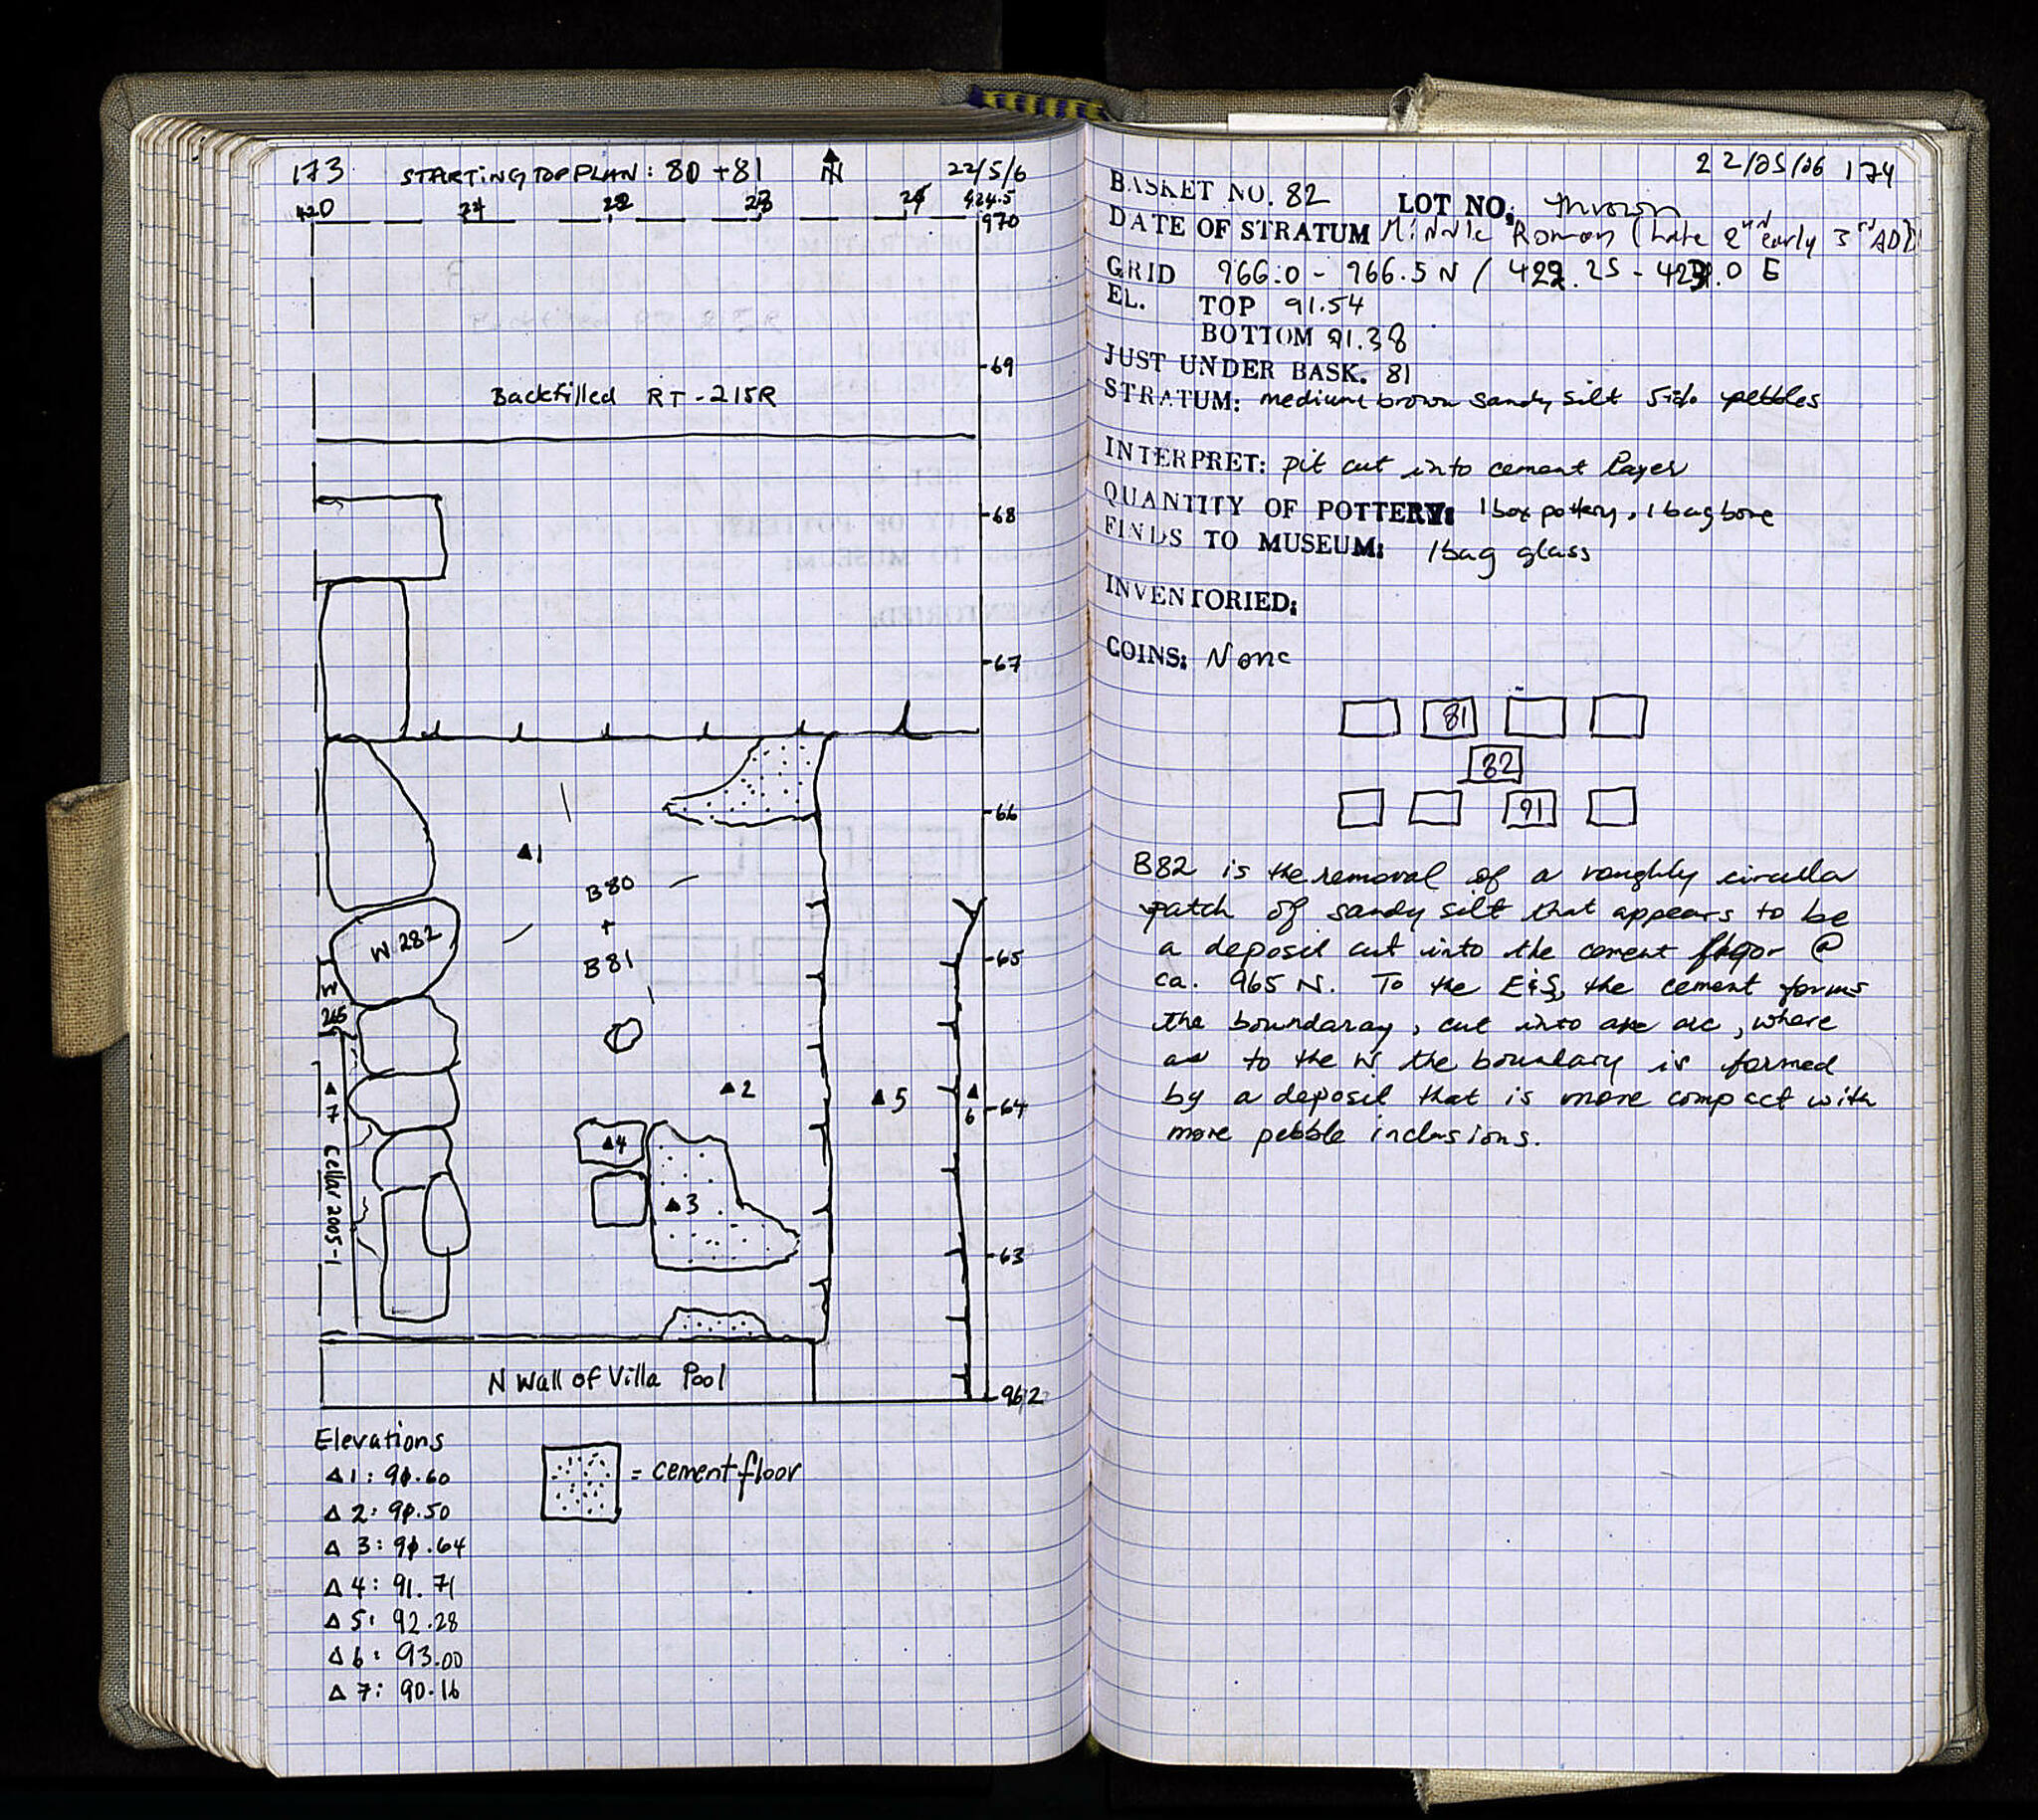 173 STARTING TOP PLAN: 80 + 81 N 22/5/6
420 21 22 23 24 424.5
970
69
Backfilled RT-215R
68
67
66
▲1
B80
+
B81
W.282
65
W
265
▲2
▲5
▲
6
64
▲
7
▲4
▲3
Cellar 2005-1
63
N Wall of Villa Pool
962
Elevations
Δ 1: 91.60
Δ 2: 91.50
Δ 3: 91.64
Δ 4: 91.71
Δ 5: 92.28
Δ 6: 93.00
Δ 7: 90.16
= cement floor
22/05/06 174
BASKET NO. 82 LOT NO: thrown
DATE OF STRATUM Middle Roman (Late 2nd early 3rd AD)
GRID 966.0 - 966.5 N / 422.25 - 423.0 E
EL. TOP 91.54
BOTTOM 91.38
JUST UNDER BASK. 81
STRATUM: medium brown sandy silt 5% pebbles
INTERPRET: pit cut into cement layer
QUANTITY OF POTTERY: 1 box pottery, 1 bag bone
FINDS TO MUSEUM: 1 bag glass
INVENTORIED:
COINS: None
81
82
91
B82 is the removal of a roughly circular
patch of sandy silt that appears to be
a deposit cut into the cement floor @
ca. 965 N. To the E & S, the cement forms
the boundaray, cut into an arc, where
as to the W. the boundary is formed
by a deposit that is more compact with
more pebble inclusions.